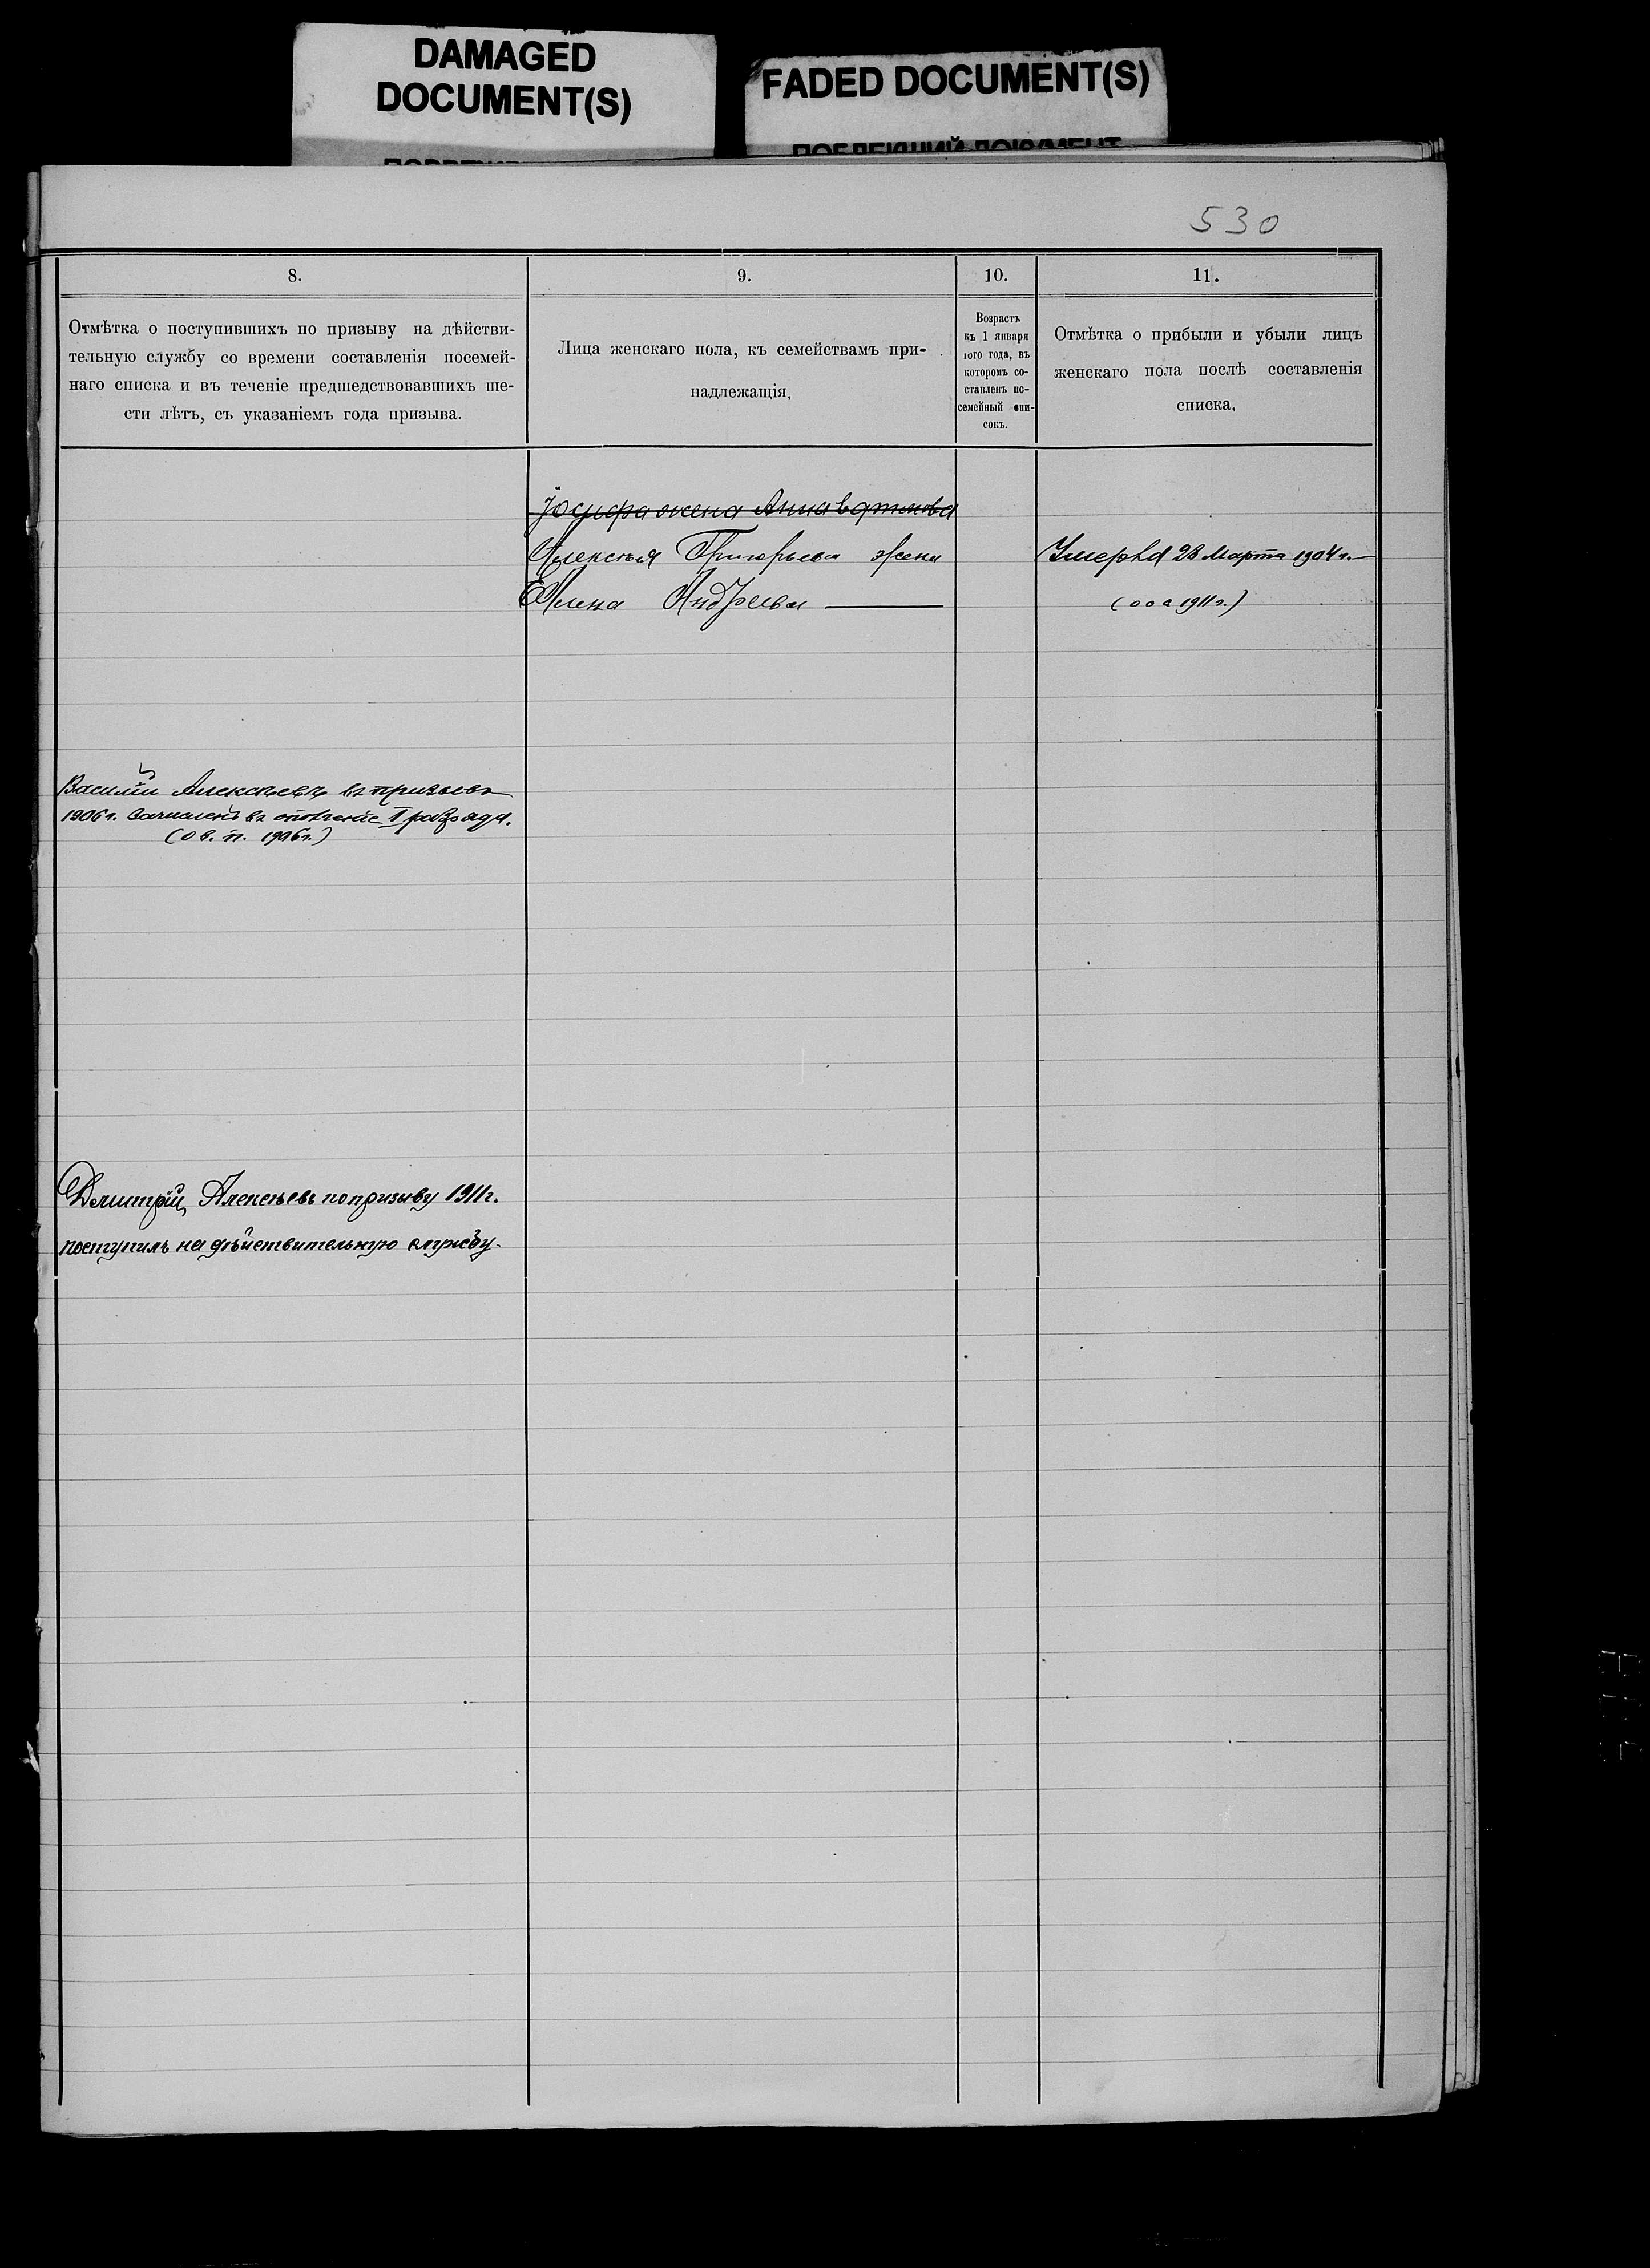 DAMAGED
DOCUMENT(S)
FADED DOCUMENT(S)
ПОБЛЕКШИЙ ДОКУМЕНТ
530
8.
Отмѣтка о поступившихъ по призыву на дѣйстви-
тельную службу со времени составленія посемей-
наго списка и въ теченіе предшедствовавшихъ ше-
сти лѣтъ, съ указаніемъ года призыва.
9.
Лица женскаго пола, къ семействамъ при-
надлежащія,
10.
Возрастъ
къ 1 января
того года, въ
которомъ со-
ставленъ по-
семейный спи-
сокъ.
11.
Отмѣтка о прибыли и убыли лицъ
женскаго пола послѣ составленія
списка,
Іосифа жена Анна
Алексѣя Григорьева жена
Елена Андреева
Умерла 28 Марта 1904 г.
(о о а 1911 г.)
Василій Алексѣевъ въ призывъ
1906 г. зачисленъ въ ополченіе I разряда.
(о в. п. 1906 г.)
Дмитрій Алексѣевъ по призыву 1911 г.
поступилъ на дѣйствительную службу.